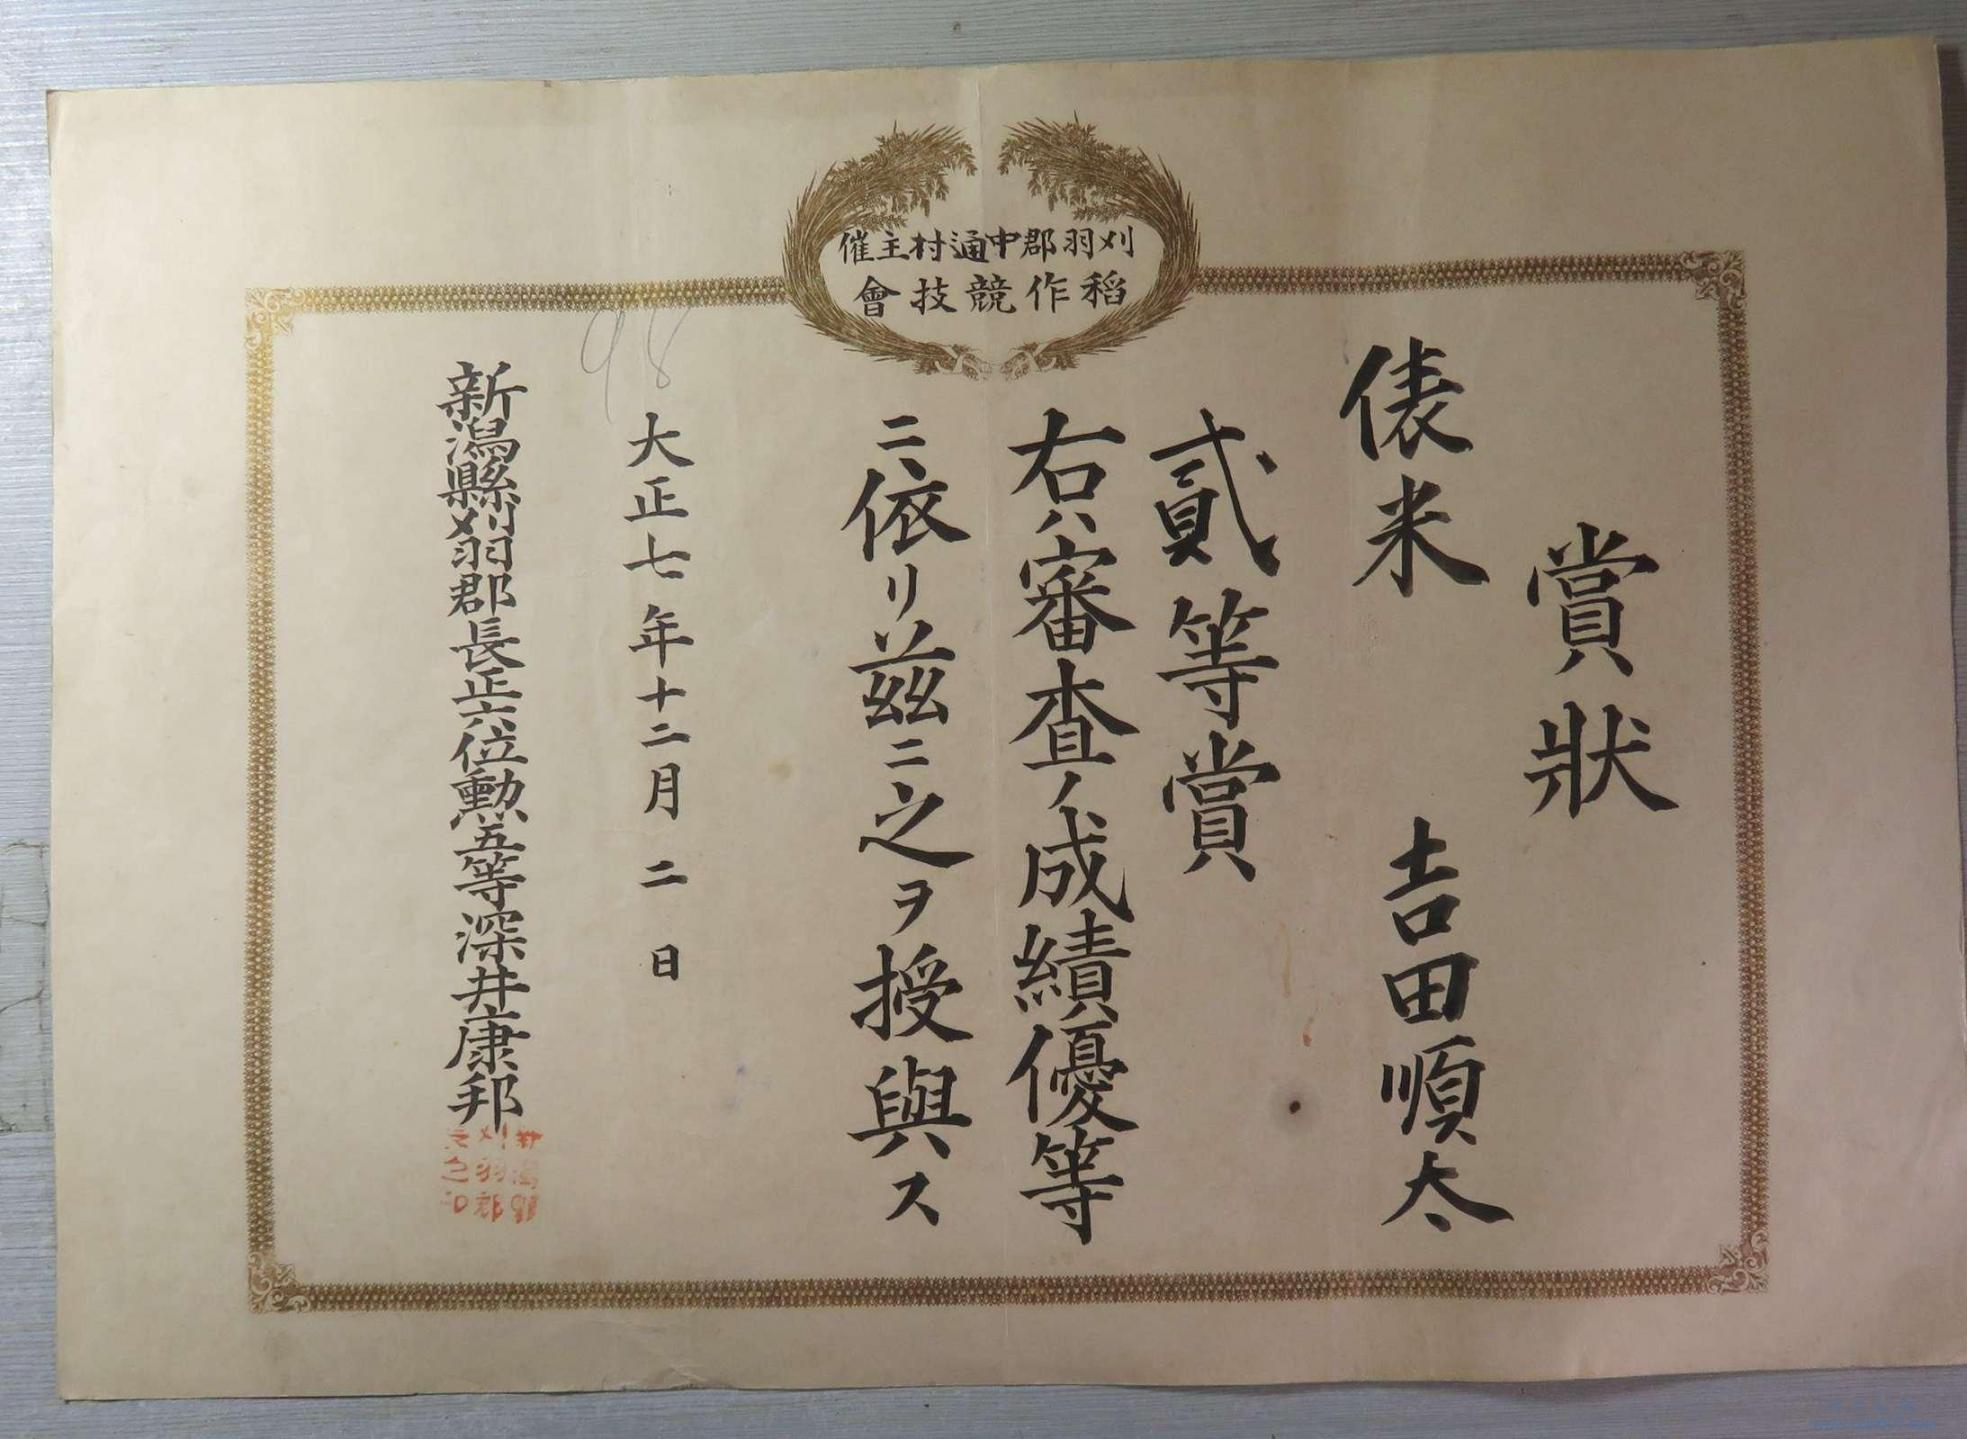 刈羽郡中通村主催
稻作競技會
賞狀
俵米 吉田順太
貳等賞
右ハ審査ノ成績優等
ニ依リ茲ニ之ヲ授與ス
大正七年十二月二日
新潟縣刈羽郡長正六位勳五等深井康邦
98